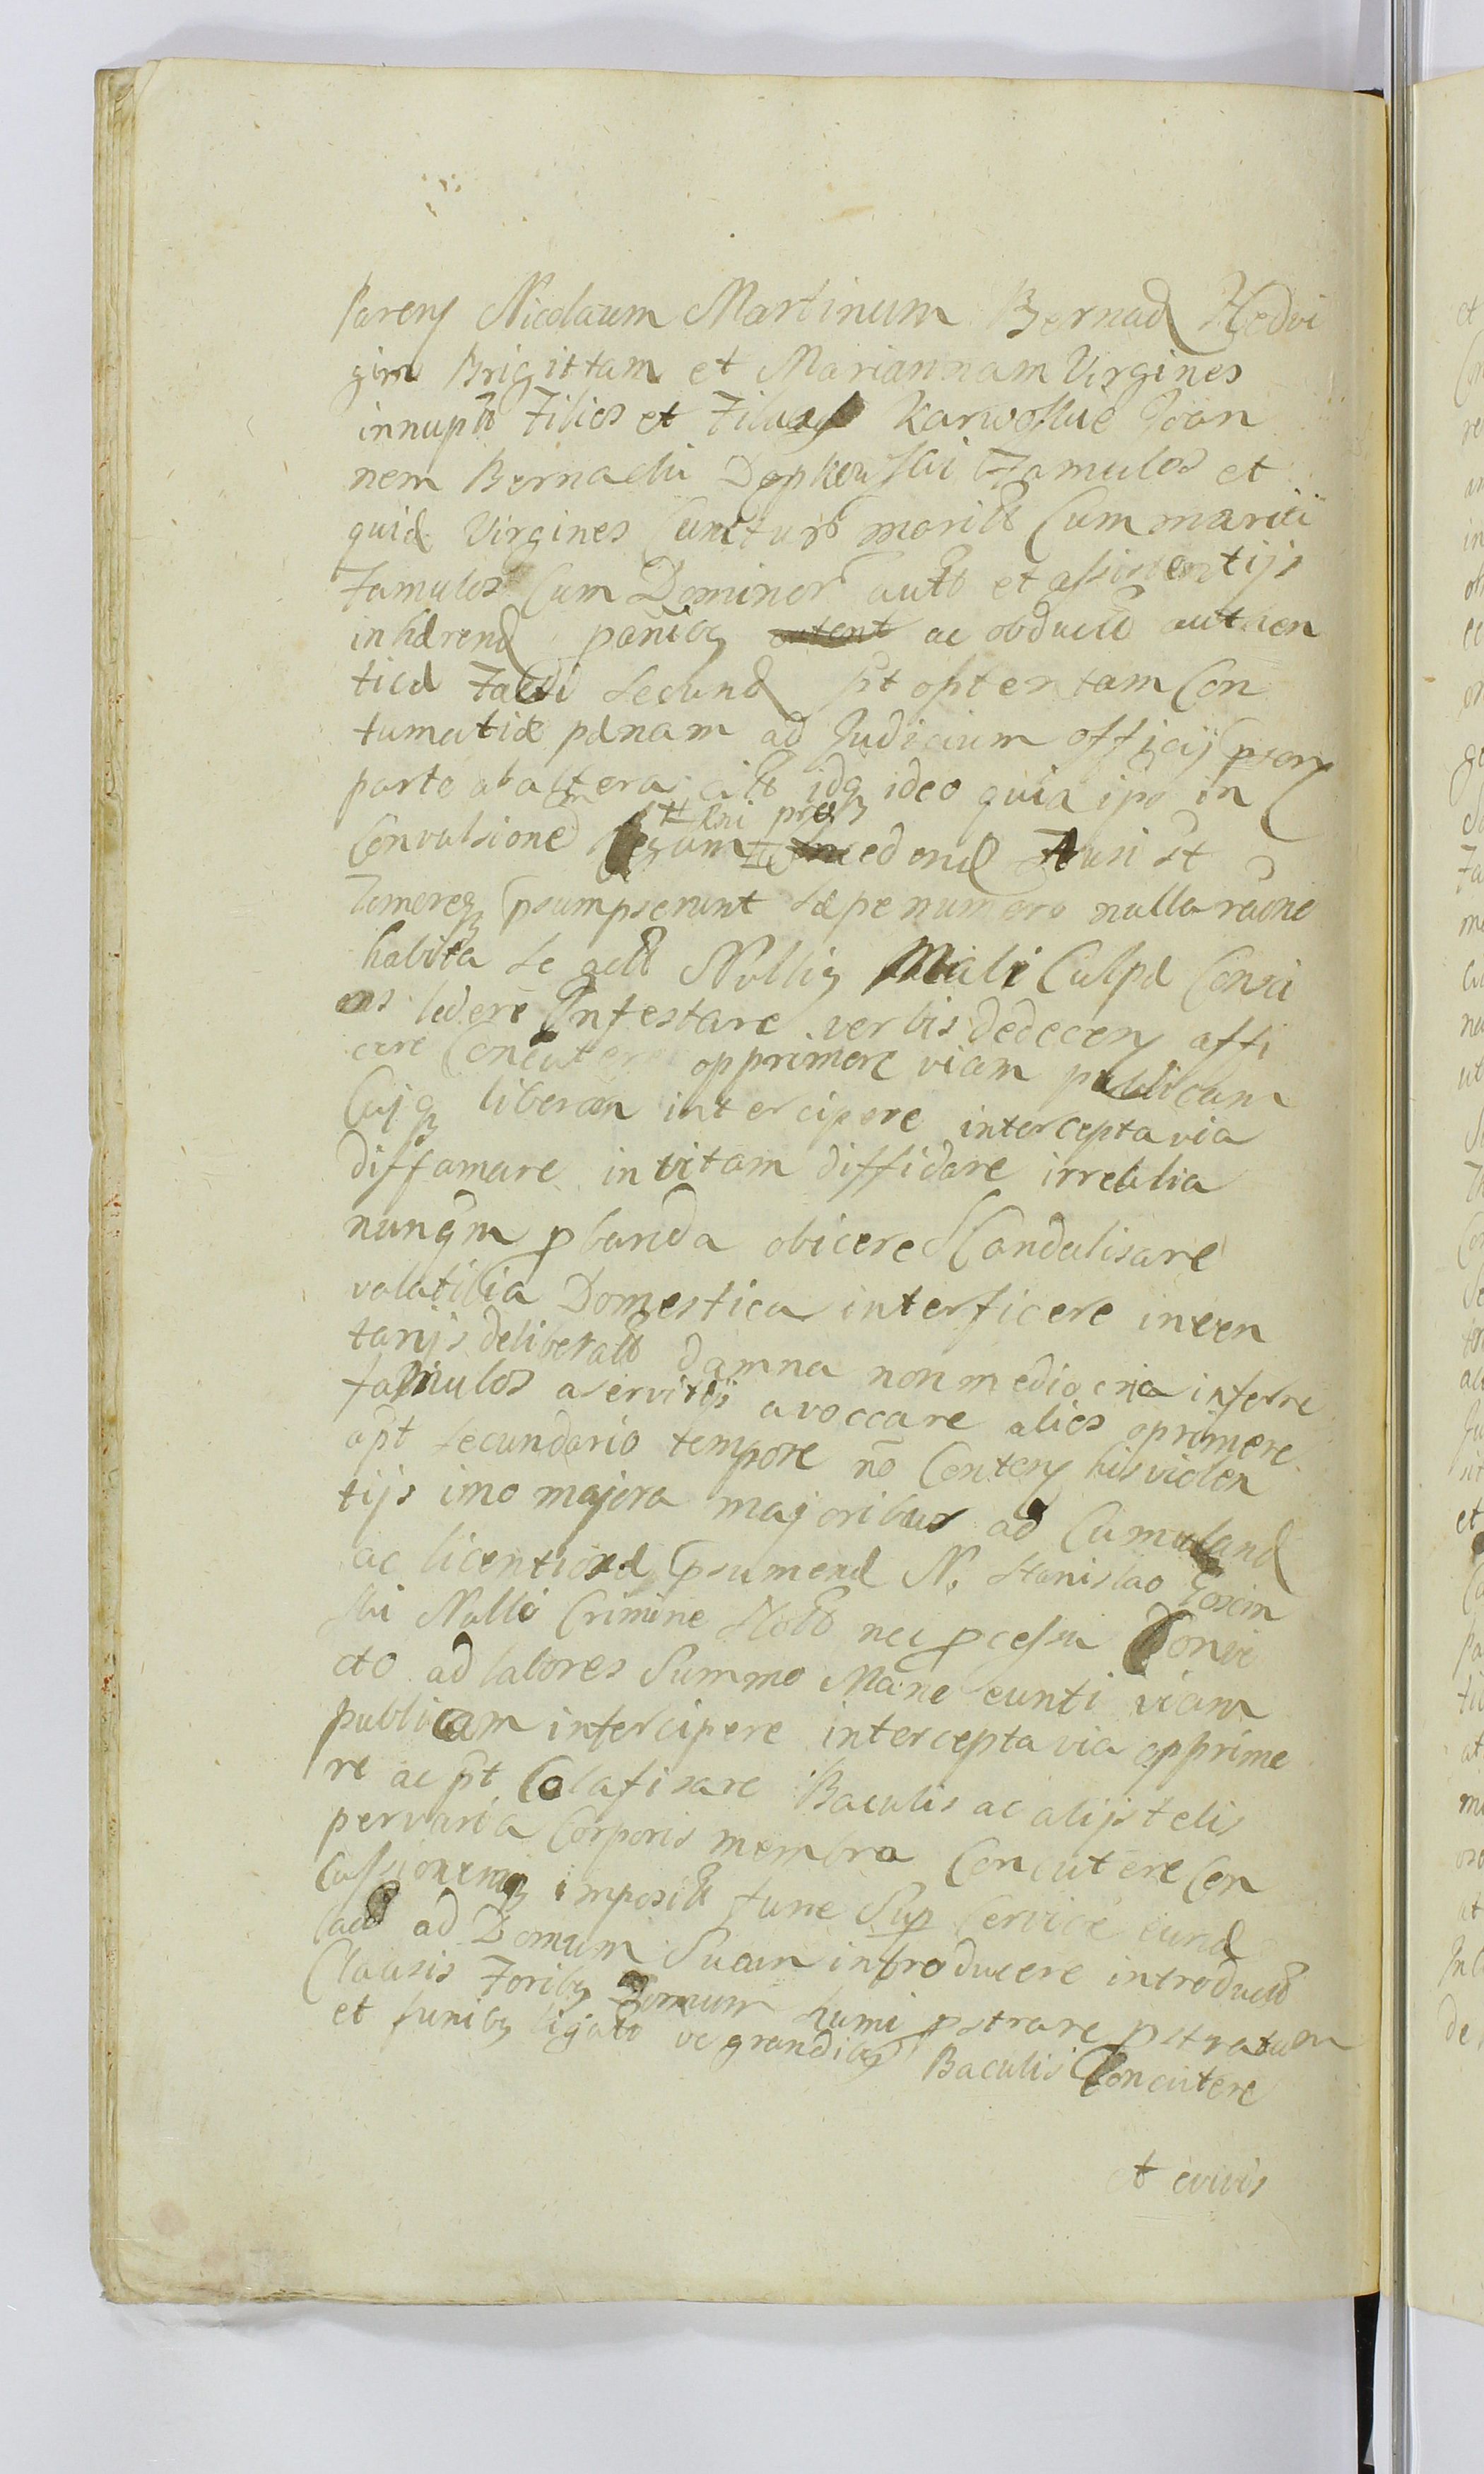 Nicolaum Martinum Bernad Hedvi
gim Brigittam et Mariannam Virgines
innupt Filios et Filias Karwoskie Joan
nem Bernadu Famulos et
quid Virgines Cum maritii
Famulos Cum Dominor aut et assistentijs
inhærend ac obduct authen
ticæ secund optentam Con
tumatiæ pænam ad Judicium officij
parte ab altera idq ideo quia ipi in
Convulsione Legum Ausi st
Temereq psumpserunt sæpe numero nulla raone
habita se Nulliq Mali Culpæ Consci
os ledere Infestare verbis dedecen affi
cere Concutere opprimere viam publicam
Cuiq liberam intercipere intercepta via
diffamare in vitam diffidare irrealia
nunqm pbanda obicere Scandalisare
volatilia Domestica interficere inven
tarijs deliberatt damna non mediocria inferre
famulos a servitijs avoccare alios oprimere
apt secundario tempore no Conten his violen
tijs imo majora majoribus ad Cumuland
ac licentiose psumend N. Stanislao
ski Nullo Crimine nec pcessu Convi
cto ad labores Summo Mane eunti viam
publicam intercipere intercepta via opprime
re ac pt Colafisare Baculis ac alijs telis
per varia Corporis membra Concutere Con
cussionemq imposit fune Sup Cervice eund
ad Domum Suam introducere introduct
Clausis Foribq humi pstrare pstratum
et funibq ligato ac grandibq Baculis Concutere
et evivis